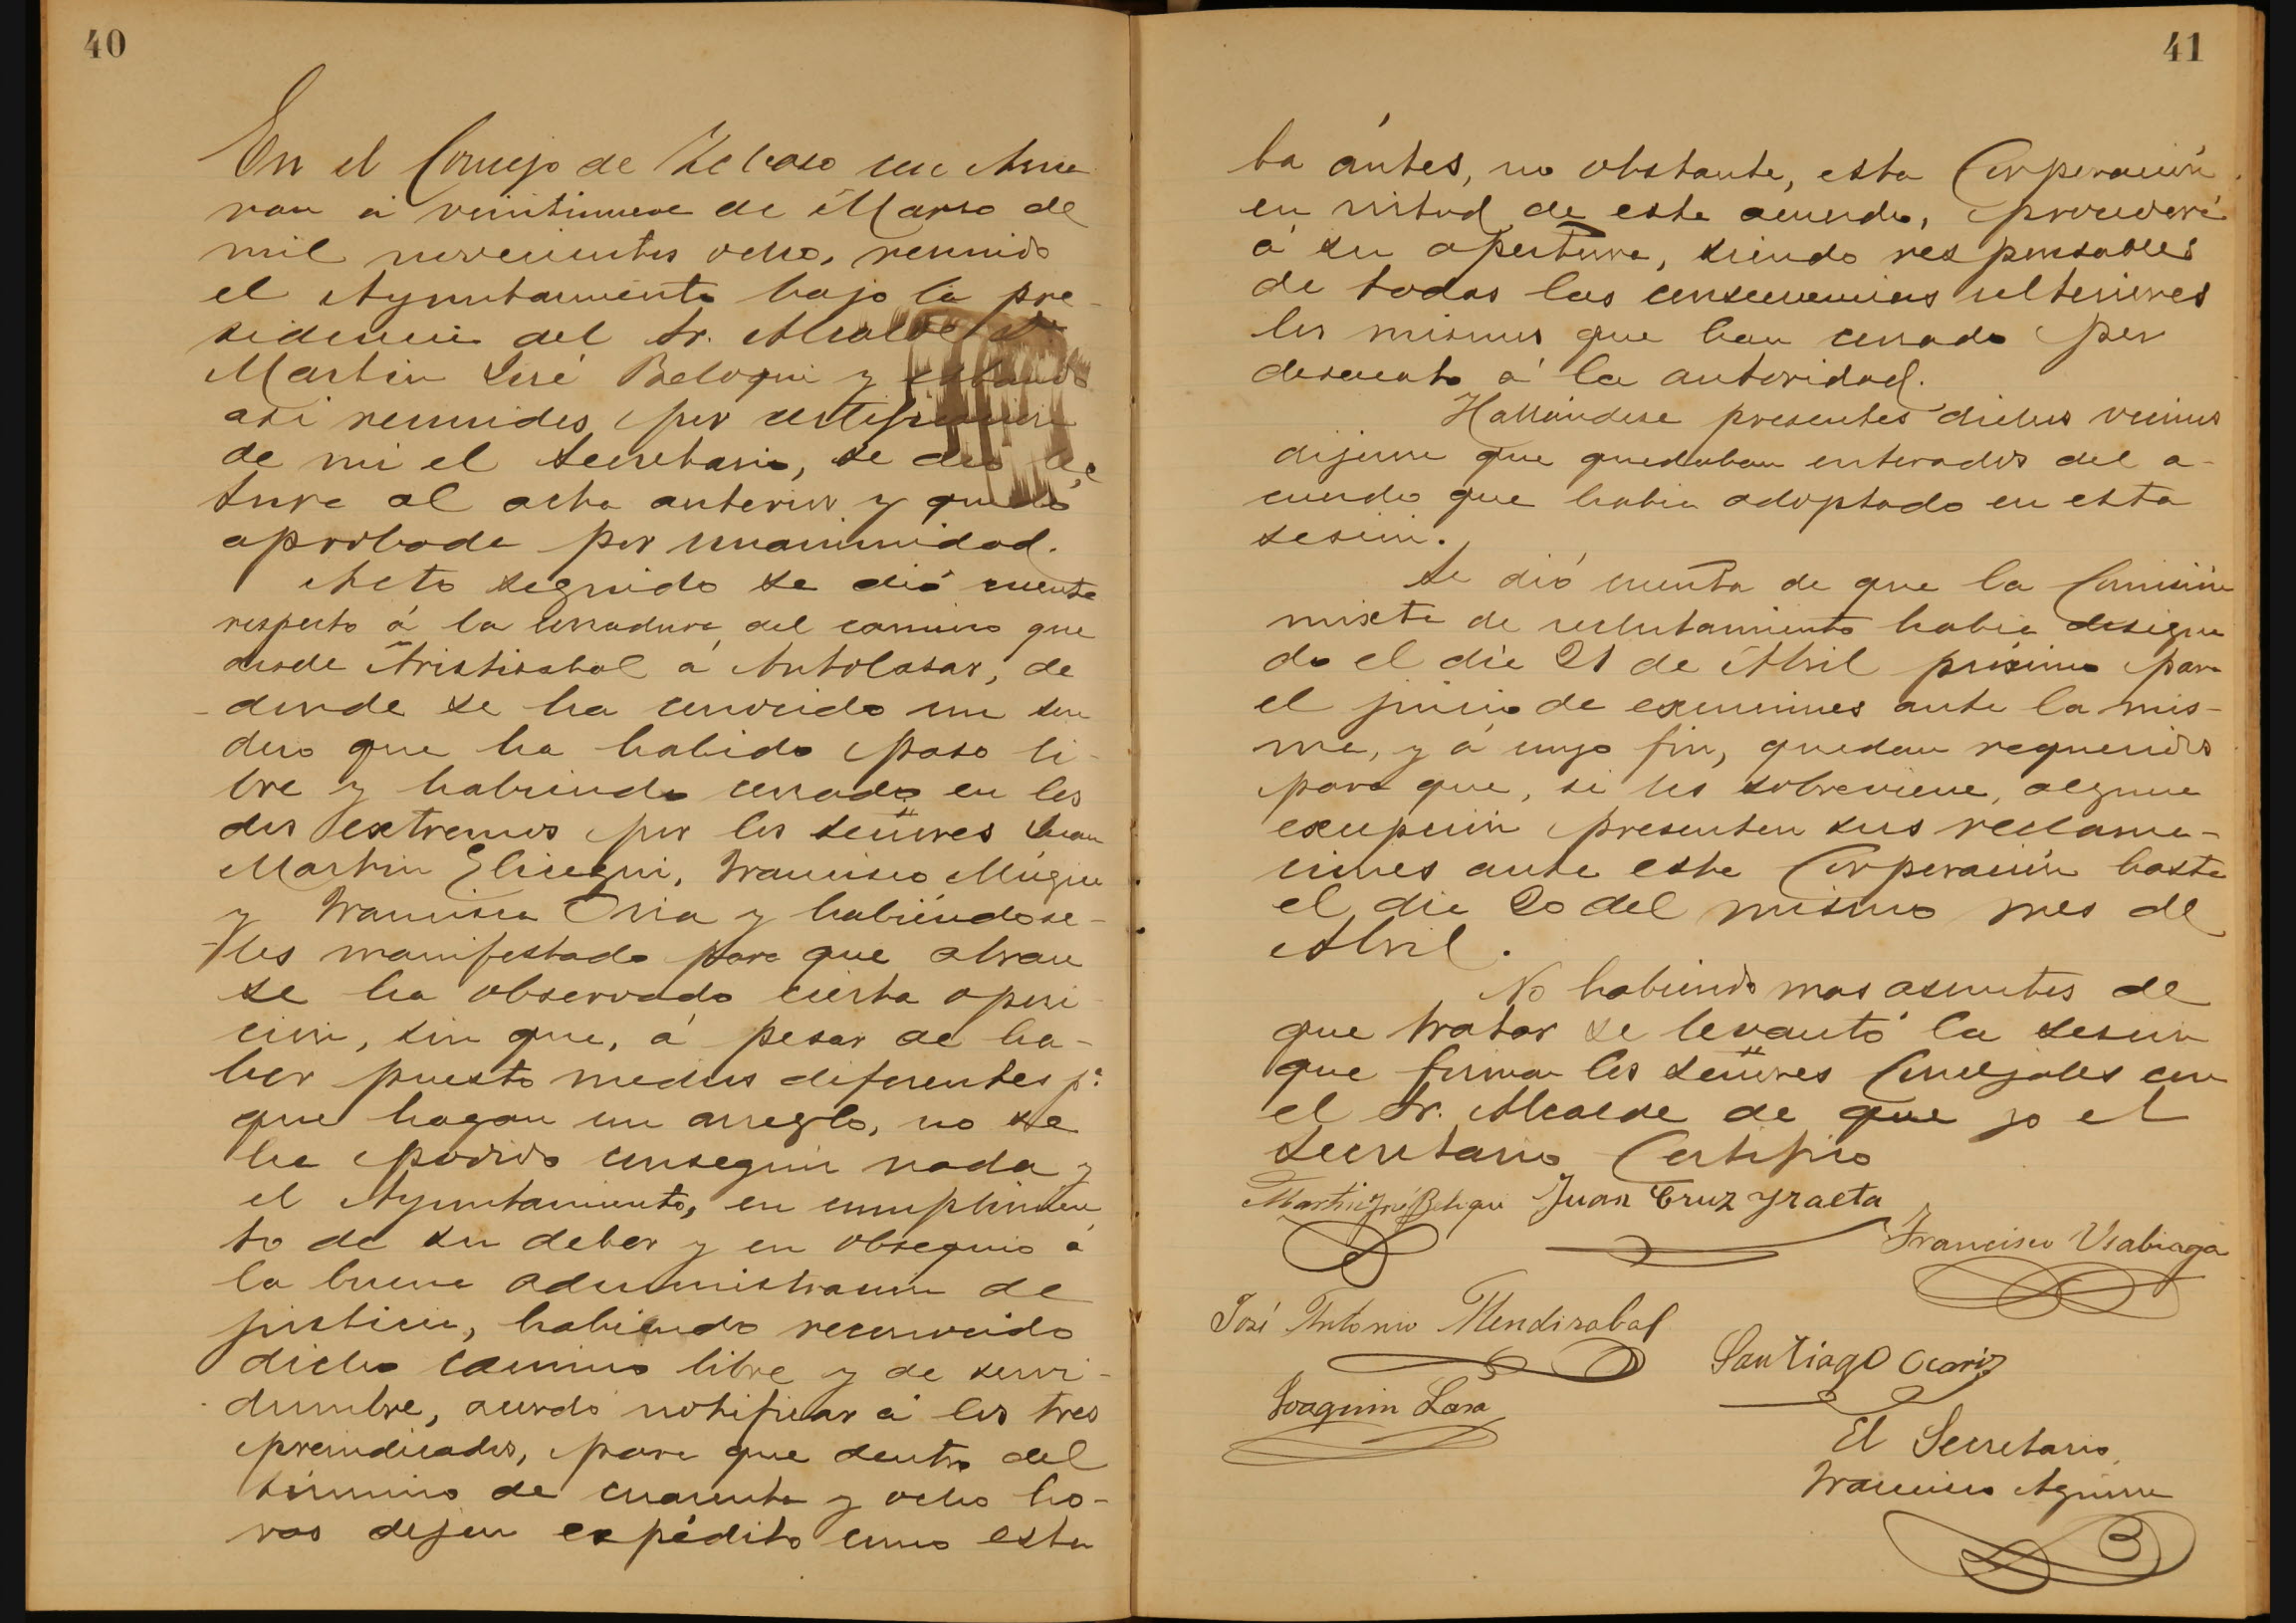 40
En el Concejo de Zeleaso
ran á veintinueve de Marzo de
mil novecientos ocho, reunido
el Ayuntamiento bajo la pre-
sidencia del Sr. Alcalde D.
Martin José Beloqui y estando
asi reunidos por certificacion
de mi el Secretario, se dió lec
tura al acta anterior y quedó
aprobada por unanimidad.
Acto seguido se dió cuenta
respecto á la cerradura del camino que
desde Aristisabal á Antolasar, de
donde se ha conocido un sen
dero que ha habido paso li-
bre y habiendo cerrado en los
dos extremos por los señores Juan
Martin Elicegui, Francisco Múgica
y Francisca Oria y habiéndose-
les manifestado para que abran
se ha observado cierta oposi-
cion, sin que, á pesar de ha-
ber puesto medios diferentes pª
que hagan un arreglo, no se
ha podido conseguir nada y
el Ayuntamiento, en cumplimien
to de su deber y en obsequio á
la buena administracion de
justicia, habiendo reconocido
dicho camino libre y de servi-
dumbre, acordó notificar á los tres
preindicados, para que dentro del
término de cuarenta y ocho ho-
ras dejen expédito como esta
41
ba ántes, no obstante, esta Corporación
en virtud de este acuerdo, procederá
á su apertura, siendo responsables
de todas las consecuencias ulteriores
los mismos que han cerrado por
desacato á la autoridad.
Hallándose presentes dichos vecinos
dijeron que quedaban enterados del a-
cuerdo que habia adoptado en esta
sesion.
Se dió cuenta de que la Comisión
mixta de reclutamiento habia designa
do el dia 21 de Abril próximo para
el juicio de exenciones ante la mis-
ma, y á cuyo fin, quedan requeridos
para que, si les sobreviene, alguna
excepción presenten sus reclama-
ciones ante esta Corporación hasta
el dia 20 del mismo mes de
Abril.
No habiendo mas asuntos de
que tratar se levantó la sesion
que firman los señores Concejales con
el Sr. Alcalde de que yo el
Secretario Certifico
Martin José Beloqui Juan Cruz Yraeta
Francisco Usabiaga
José Antonio Mendizabal
Santiago Ocariz
Joaquin Lasa
El Secretario
Francisco Aguirre